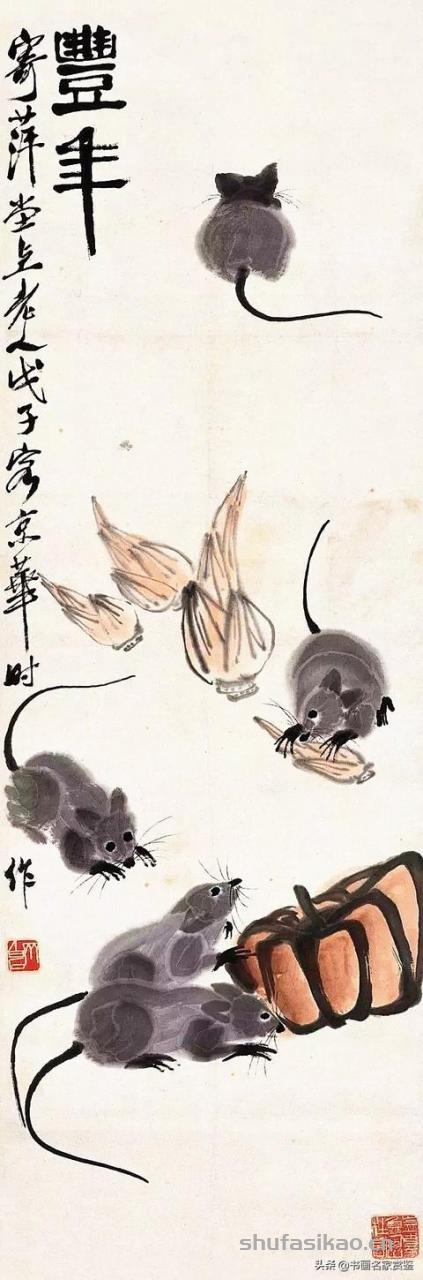 豐年
寄萍堂上老人戊子客京華时作
shufasikao.cn
头条@书画名家赏鉴